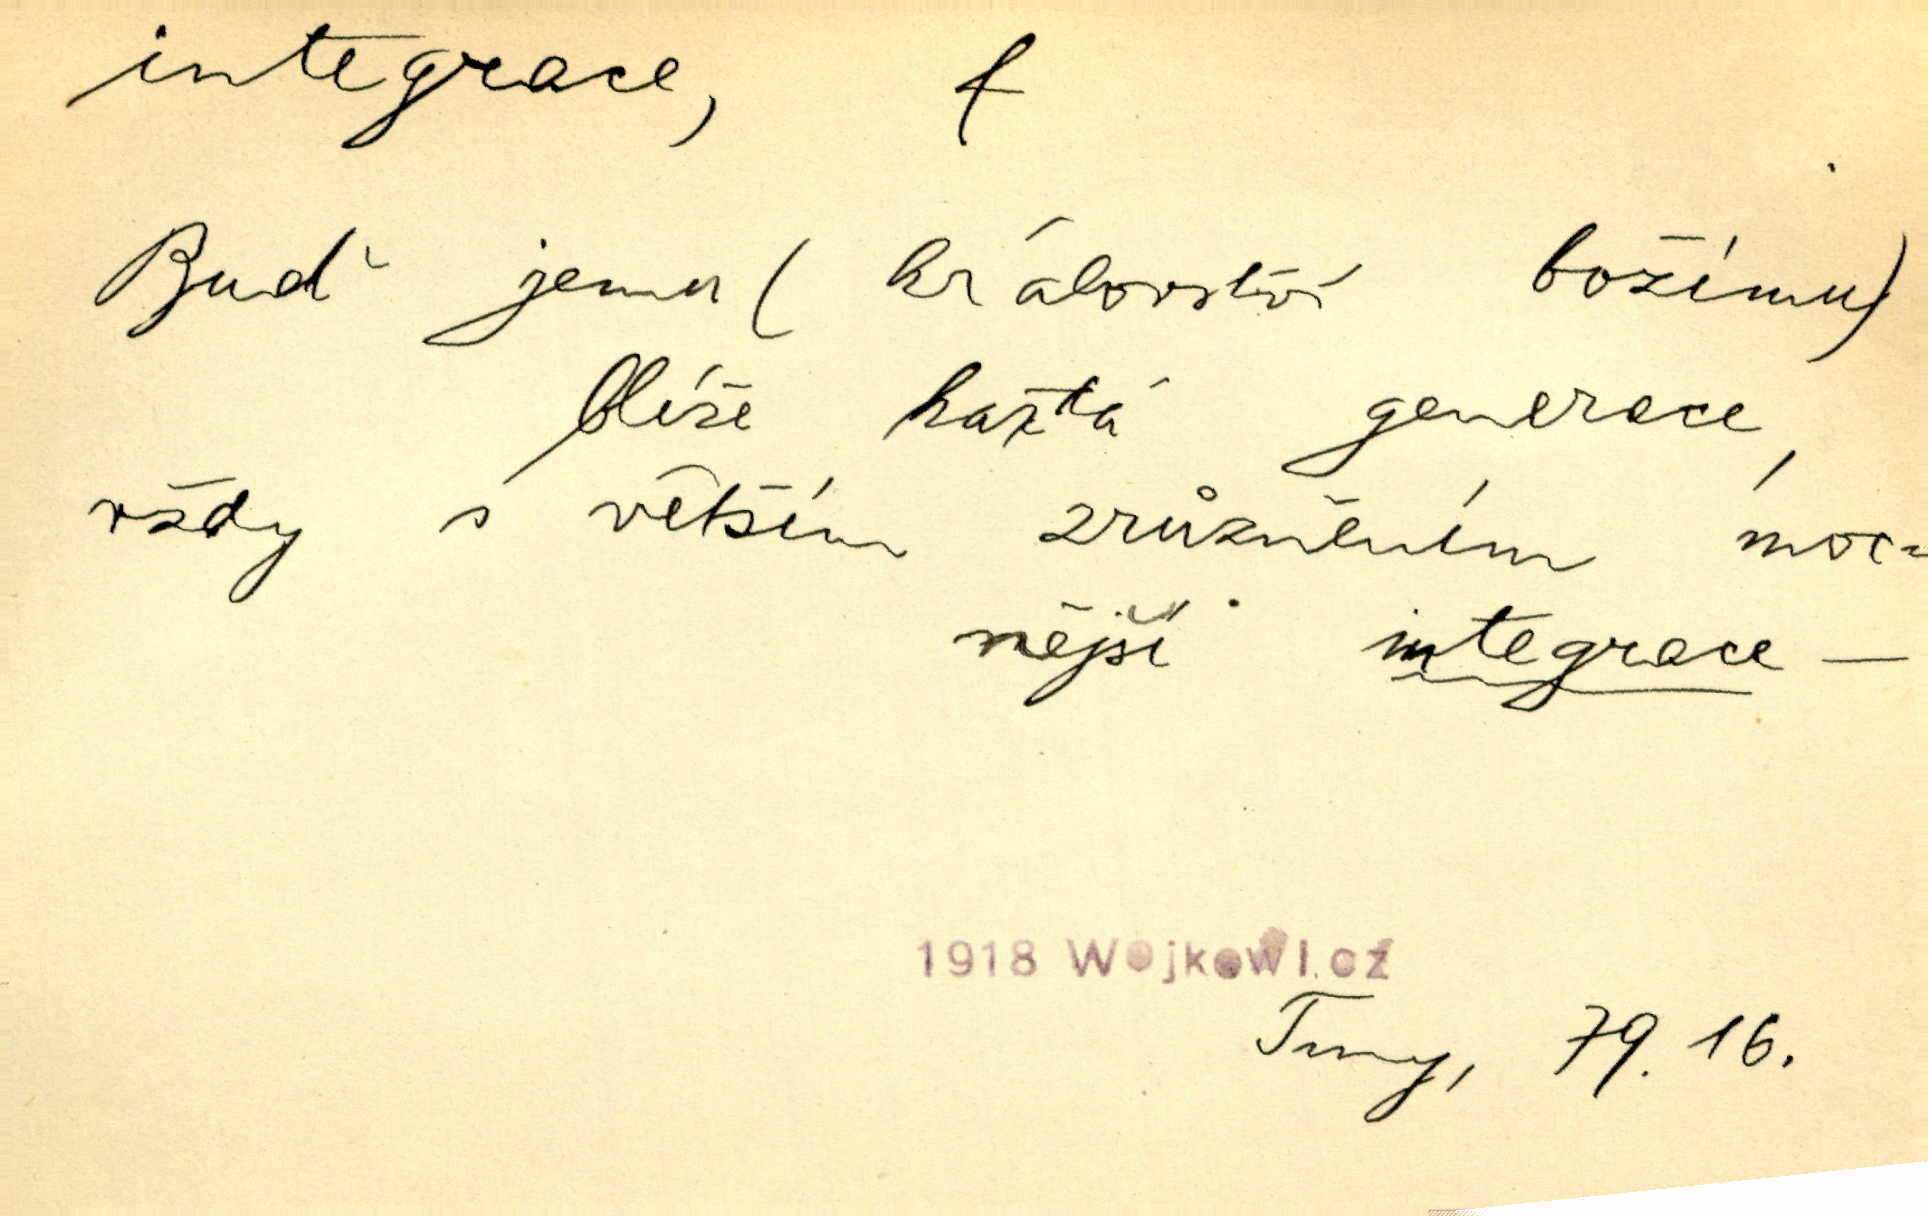 integrace, f
Buď jemu (království božímu)
blíže každá generace,
vždy s větším zrůzněním moc-
nější integrace —
1918 Wojkowicz
Tmy, 79. 16.